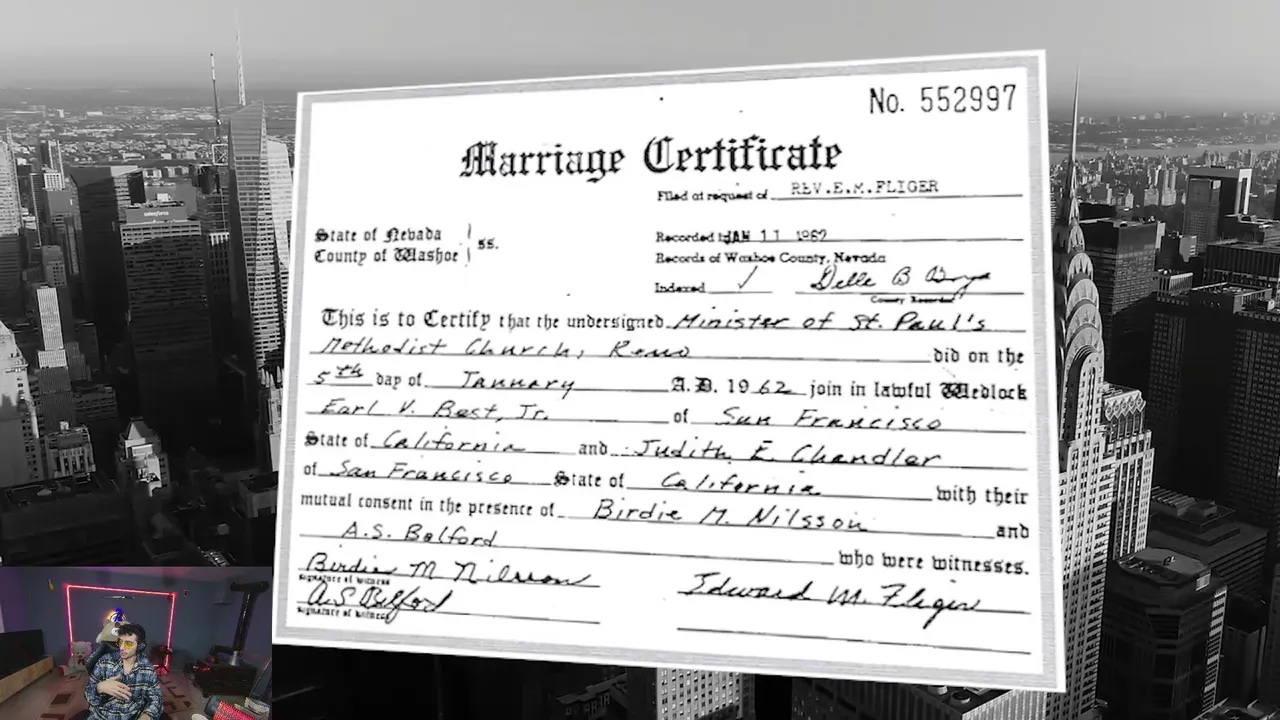 No. 552997
Marriage Certificate
Filed at request of REV.E.M.FLIGER
State of Nevada
County of Washoe
ss.
Recorded JAN 11 1962
Records of Washoe County, Nevada
Indexed Delle B
County Recorder
This is to Certify that the undersigned Minister of St. Paul's
Methodist Church, Reno did on the
5th day of January A.D. 1962 join in lawful Wedlock
Earl V. Best, Jr. of San Francisco
State of California and Judith E. Chandler
of San Francisco State of California with their
mutual consent in the presence of Birdie M. Nilsson and
A.S. Belford who were witnesses.
Birdie M Nilsson
Signature of Witness
A.S. Belford
Signature of Witness
Edward M. Fliger
salesforce